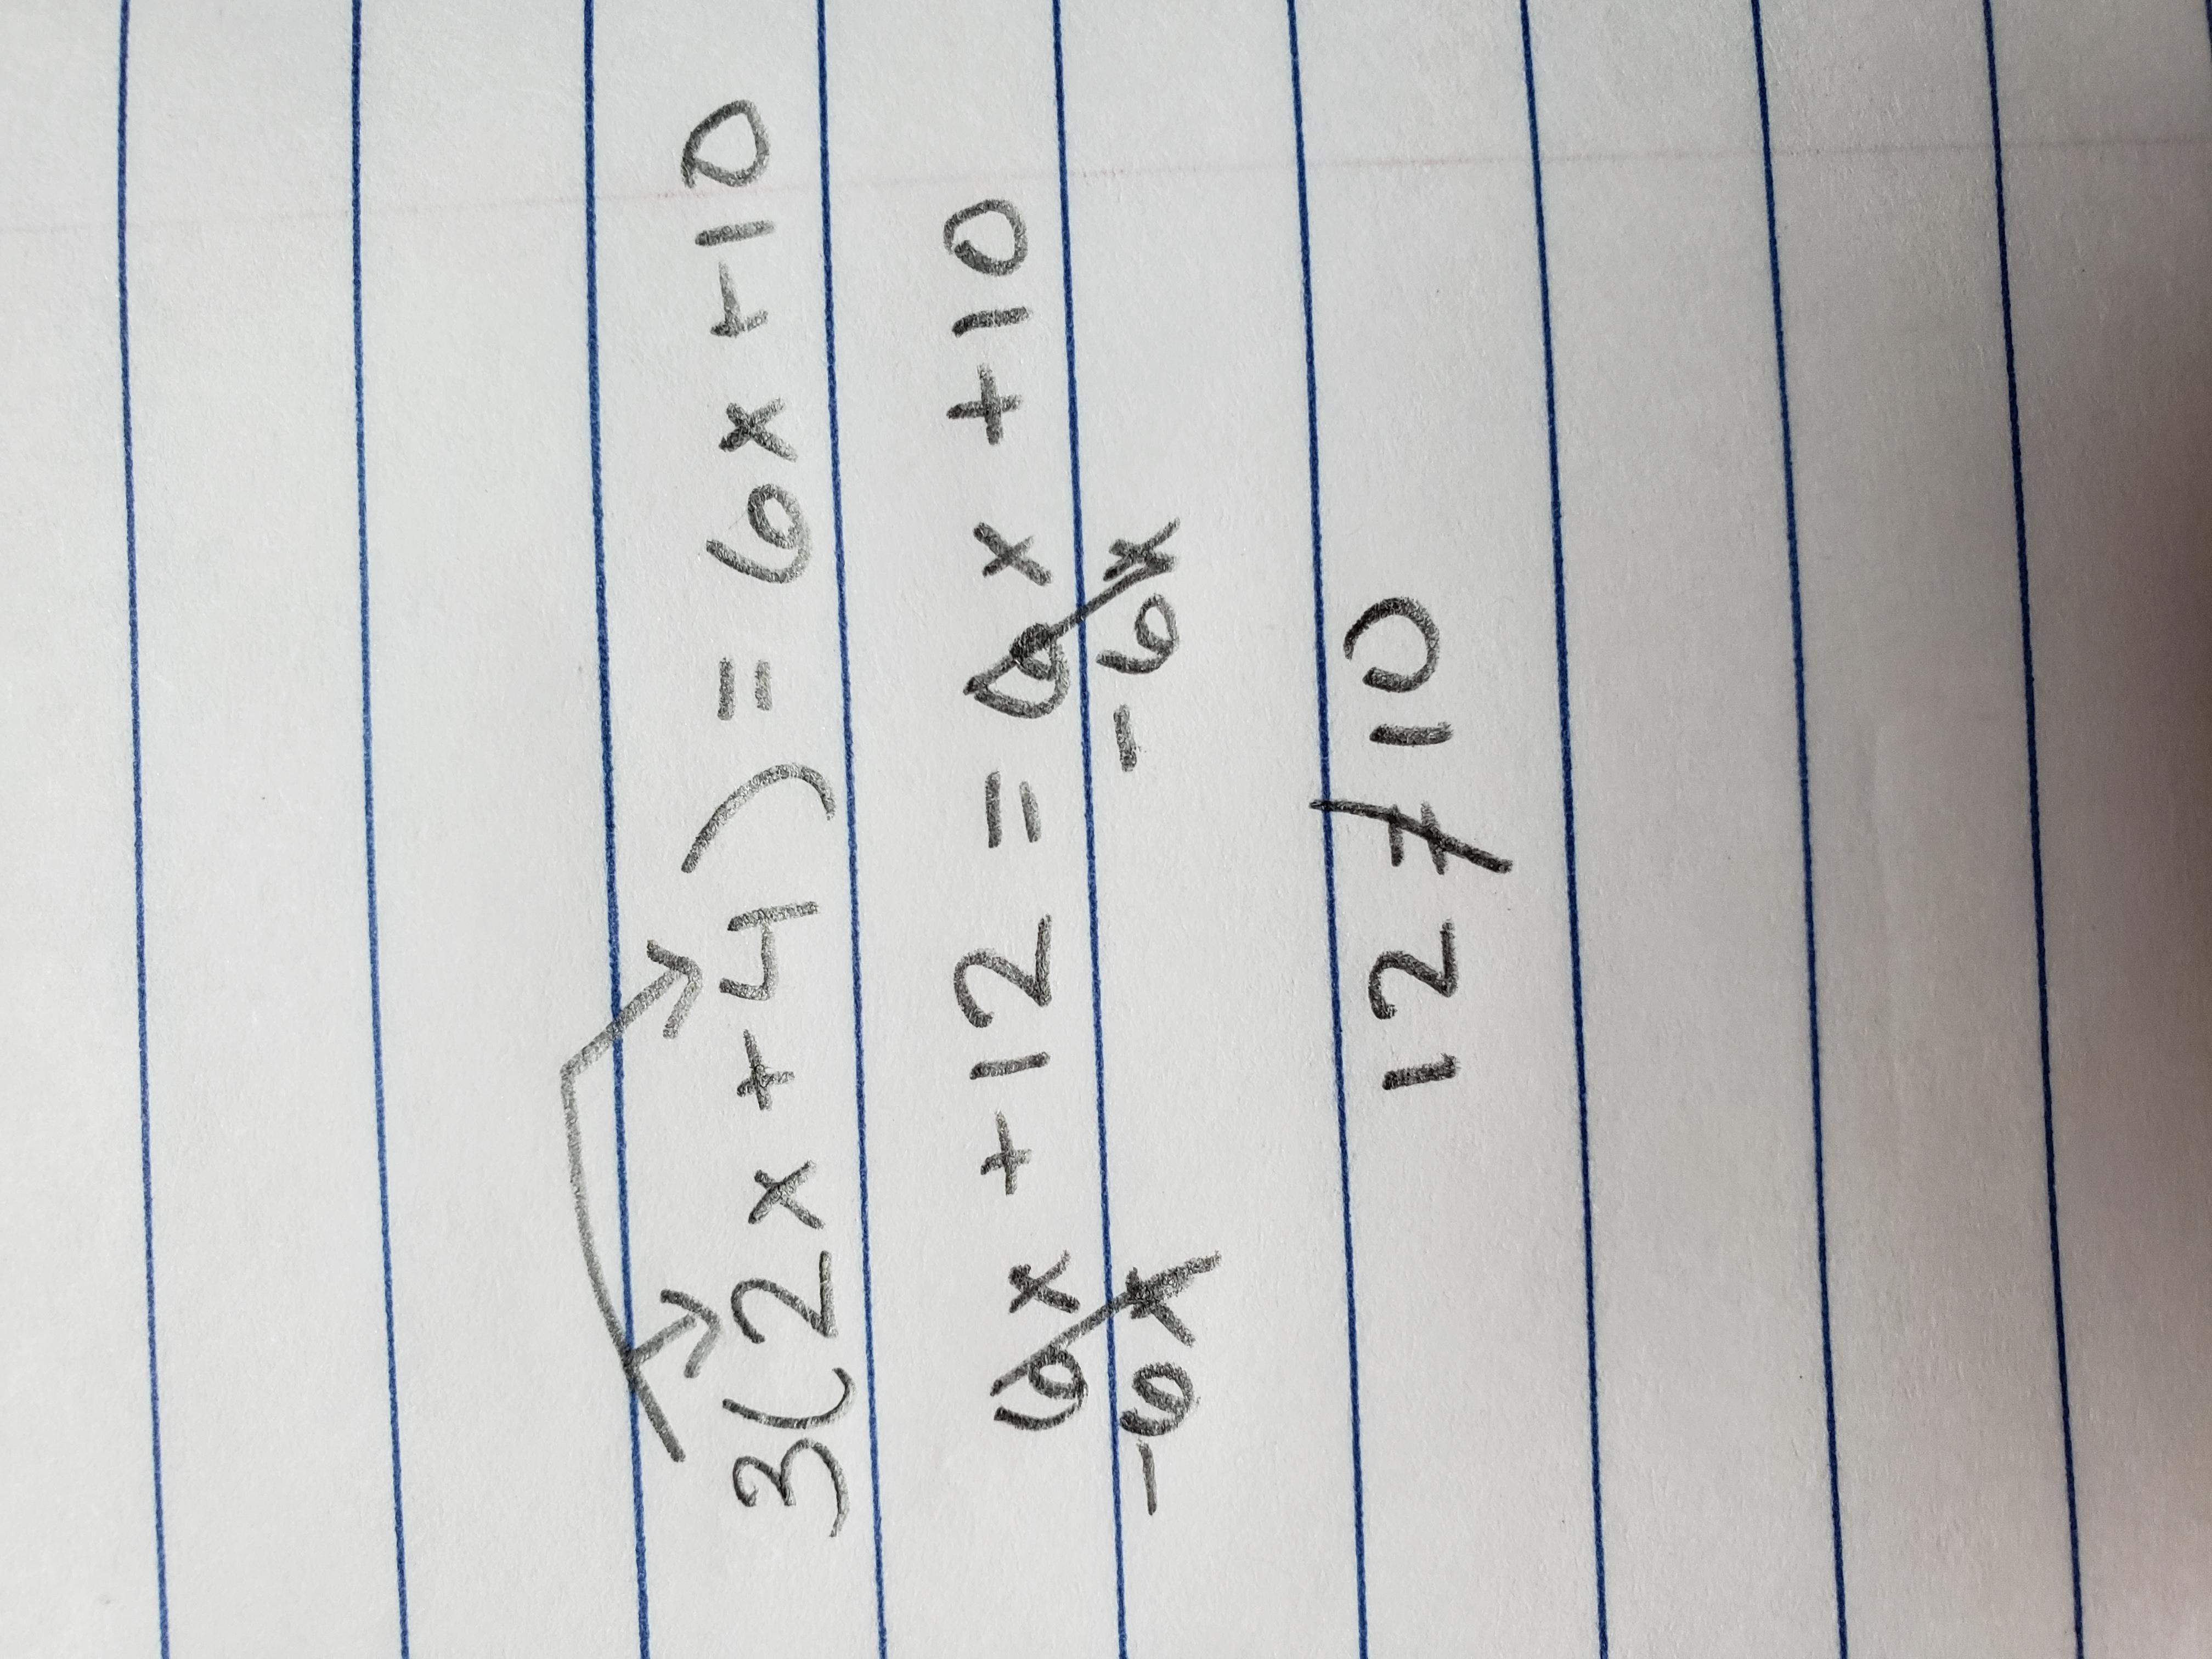 3(2x+4) = 6x+10
6x + 12 = 6x + 10
-6x -6x
12 ≠ 10